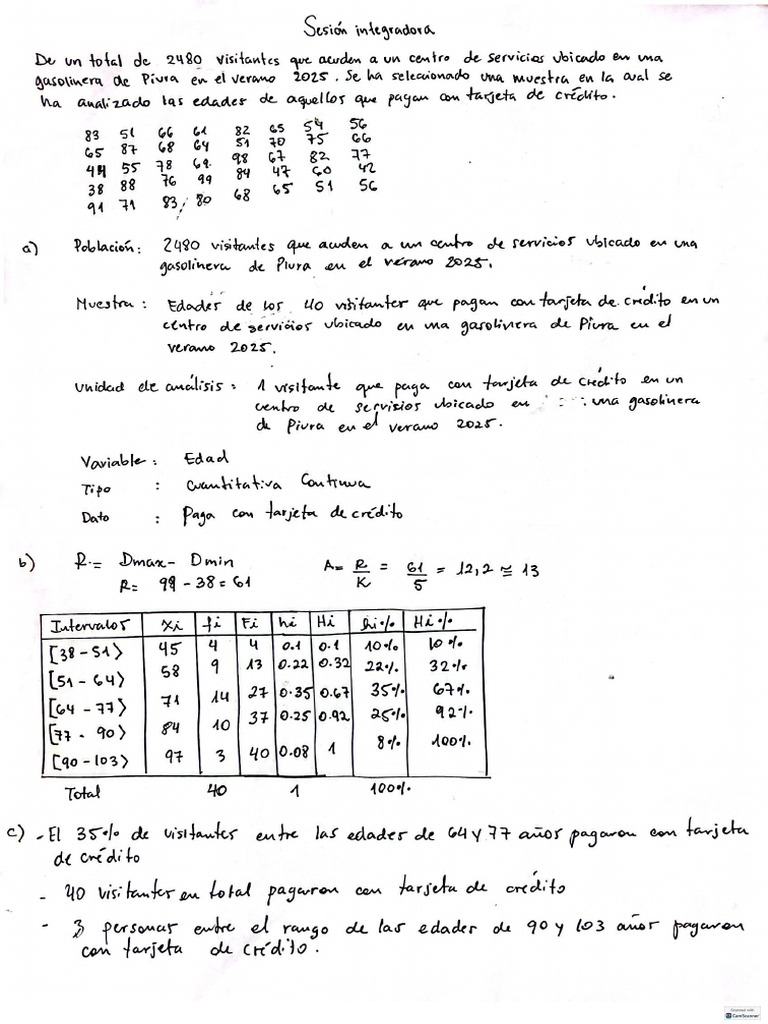 Sesión integradora
De un total de 2480 visitantes que acuden a un centro de servicios ubicado en una
gasolinera de Piura en el verano 2025. Se ha seleccionado una muestra en la cual se
ha analizado las edades de aquellos que pagan con tarjeta de crédito.
83 51 66 61 82 65 54 56
65 87 68 64 51 70 75 66
44 55 78 69 98 67 82 77
38 88 76 99 84 47 60 42
91 71 83 80 68 65 51 56
a) Población: 2480 visitantes que acuden a un centro de servicios ubicado en una
gasolinera de Piura en el verano 2025.
Muestra: Edades de los 40 visitantes que pagan con tarjeta de crédito en un
centro de servicios ubicado en una gasolinera de Piura en el
verano 2025.
Unidad de análisis: 1 visitante que paga con tarjeta de crédito en un
centro de servisios ubicado en una gasolinera
de Piura en el verano 2025.
Variable: Edad
Tipo : Cuantitativa Continua
Dato : Paga con tarjeta de crédito
b) R = Dmax - Dmin A = R/K = 61/5 = 12,2 ≅ 13
R = 99 - 38 = 61
Intervalos xi fi Fi hi Hi hi% Hi%
[38 - 51⟩ 45 4 4 0.1 0.1 10% 10%
[51 - 64⟩ 58 9 13 0.22 0.32 22% 32%
[64 - 77⟩ 71 14 27 0.35 0.67 35% 67%
[77 - 90⟩ 84 10 37 0.25 0.92 25% 92%
[90 - 103⟩ 97 3 40 0.08 1 8% 100%
Total 40 1 100%
c) - El 35% de visitantes entre las edades de 64 y 77 años pagaron con tarjeta
de crédito
- 40 visitantes en total pagaron con tarjeta de crédito
- 3 personas entre el rango de las edades de 90 y 103 años pagaron
con tarjeta de crédito.
CamScanner